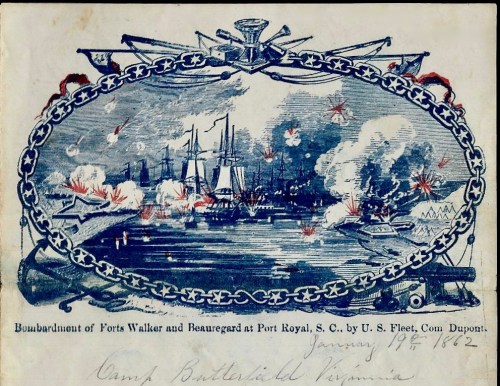 Bombardment of Forts Walker and Beauregard at Port Royal, S. C., by U. S. Fleet, Com Dupont.
January 19th 1862
Camp Butterfield Virginia